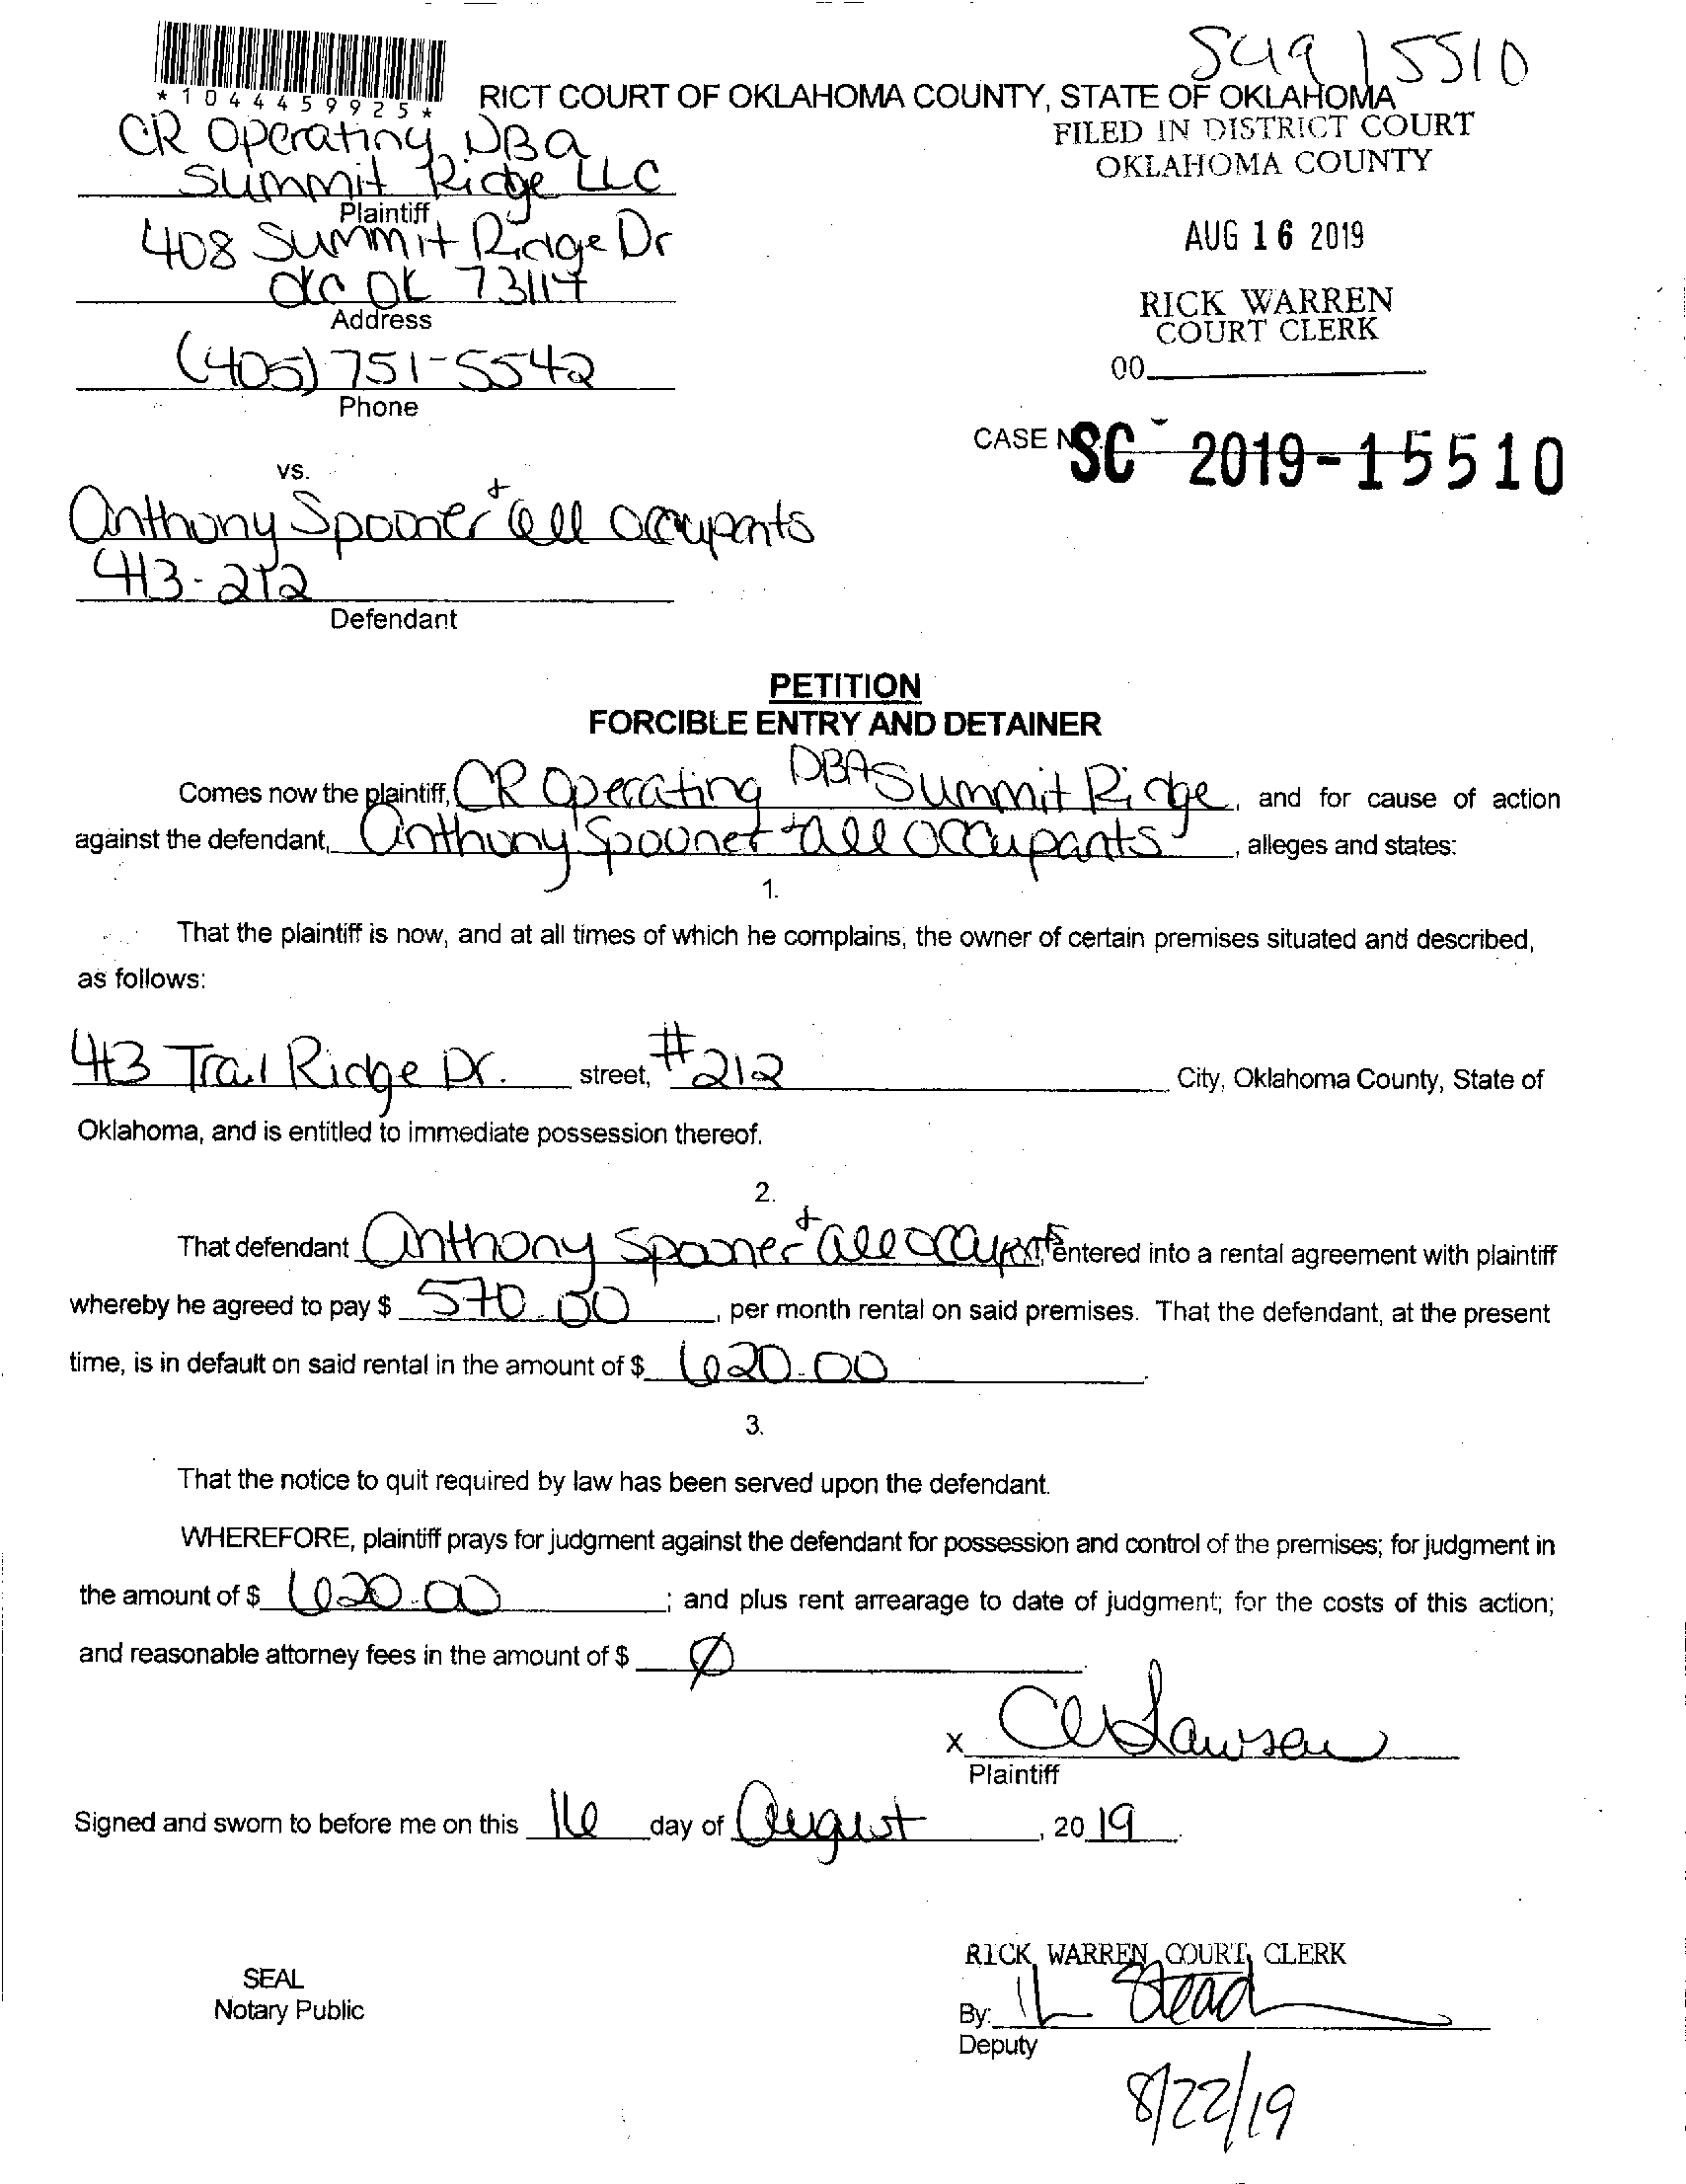 SC19 15510
*1044459925*
RICT COURT OF OKLAHOMA COUNTY, STATE OF OKLAHOMA
FILED IN DISTRICT COURT
OKLAHOMA COUNTY
AUG 16 2019
RICK WARREN
COURT CLERK
00
CR Operating DBA
Summit Ridge LLC
Plaintiff
408 Summit Ridge Dr
OKC OK 73114
Address
(405) 751-5542
Phone
CASE NO. SC - 2019-15510
vs.
Anthony Spooner + all occupants
413-212
Defendant
PETITION
FORCIBLE ENTRY AND DETAINER
Comes now the plaintiff, CR Operating DBA Summit Ridge, and for cause of action
against the defendant, Anthony Spooner + all occupants, alleges and states:
1.
That the plaintiff is now, and at all times of which he complains, the owner of certain premises situated and described,
as follows:
413 Trail Ridge Dr. street, #212 City, Oklahoma County, State of
Oklahoma, and is entitled to immediate possession thereof.
2.
That defendant Anthony Spooner + all occupants, entered into a rental agreement with plaintiff
whereby he agreed to pay $ 570.00, per month rental on said premises. That the defendant, at the present
time, is in default on said rental in the amount of $ 620.00.
3.
That the notice to quit required by law has been served upon the defendant.
WHEREFORE, plaintiff prays for judgment against the defendant for possession and control of the premises; for judgment in
the amount of $ 620.00; and plus rent arrearage to date of judgment; for the costs of this action;
and reasonable attorney fees in the amount of $ Ø
x Lawson
Plaintiff
Signed and sworn to before me on this 16 day of August, 2019.
SEAL
Notary Public
RICK WARREN, COURT CLERK
By:
Deputy
8/22/19